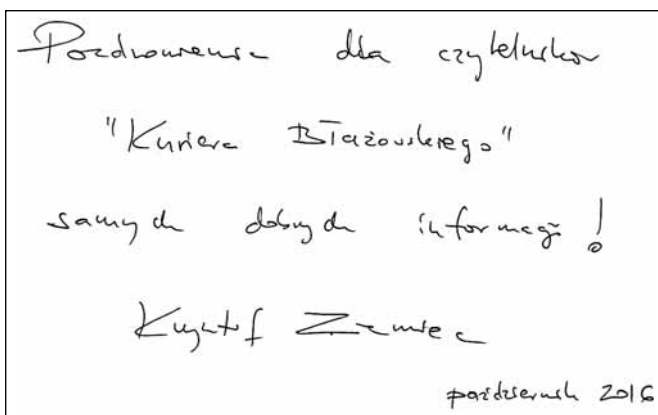 Pozdrowienia dla czytelników
"Kuriera Błażowskiego"
samych dobrych informacji!
Krzysztof Ziemiec
październik 2016